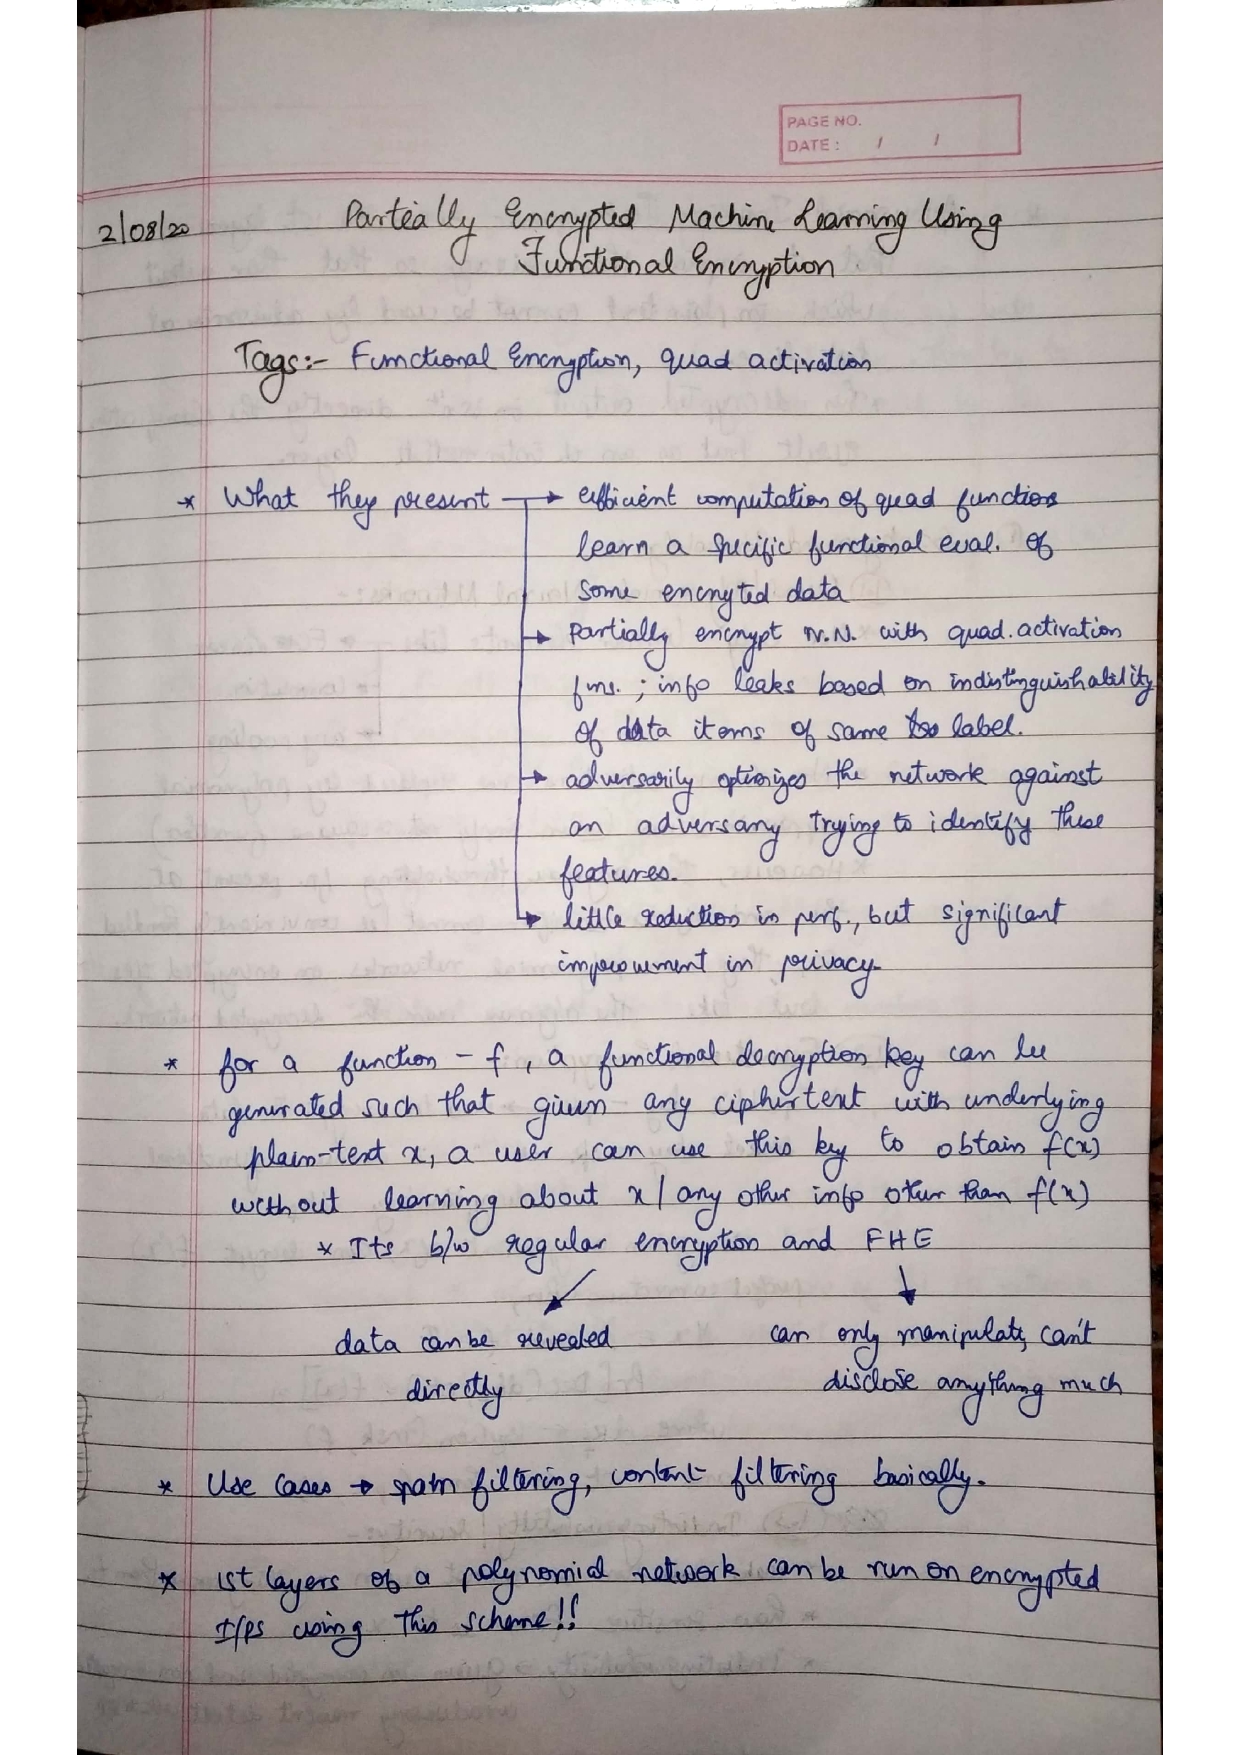 PAGE NO.
DATE : / /
2/08/20
Partially Encrypted Machine Learning Using
Functional Encryption
Tags:- Functional Encryption, quad activation
* What they present → efficient computation of quad functions
learn a specific functional eval. of
some encryted data
→ Partially encrypt N.N. with quad. activation
fns. ; info leaks based on indistinguishability
of data items of same label.
→ adversarily optimizes the network against
an adversary trying to identify these
features.
→ little reduction in perf., but significant
improvement in privacy.
* for a function - f, a functional decryption key can be
generated such that given any ciphertext with underlying
plain-text x, a user can use this key to obtain f(x)
without learning about x / any other info other than f(x)
* Its b/w regular encryption and FHE
data can be revealed can only manipulate, can't
directly disclose anything much
* Use cases → spam filtering, content filtering basically.
* 1st layers of a polynomial network can be run on encrypted
I/ps using this scheme!!